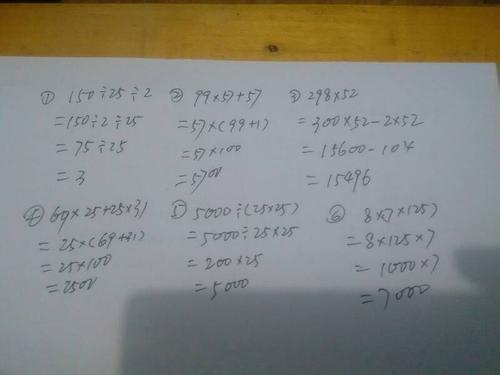 ① 150÷25÷2
=150÷2÷25
=75÷25
=3
② 99×57+57
=57×(99+1)
=57×100
=5700
③ 298×52
=300×52-2×52
=15600-104
=15496
④ 69×25+25×31
=25×(69+31)
=25×100
=2500
⑤ 5000÷(25×25)
=5000÷25×25
=200×25
=5000
⑥ 8×(7×125)
=8×125×7
=1000×7
=7000